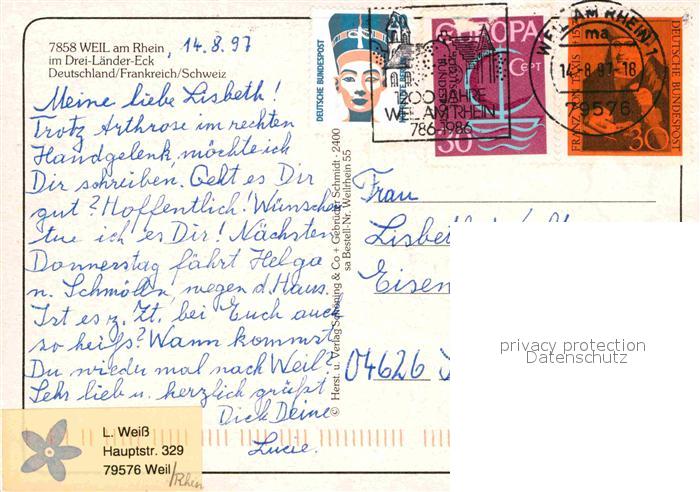 7858 WEIL am Rhein, 14.8.97
im Drei-Länder-Eck
Deutschland/Frankreich/Schweiz
Meine liebe Lisbeth!
Trotz Arthrose im rechten
Handgelenk, möchte ich
Dir schreiben. Geht es Dir
gut? Hoffentlich! Wünschen
tue ich es Dir! Nächsten
Donnerstag fährt Helga
n. Schmölln, wegen d. Haus.
Ist es z. Zt. bei Euch auch
so heiß? Wann kommst
Du wieder mal nach Weil?
Sehr lieb u. herzlich grüßt
Dich Deine
Lucie.
L. Weiß
Hauptstr. 329
79576 Weil/Rhein
© Herst. u. Verlag Schöning & Co + Gebrüder Schmidt · 2400
sa Bestell-Nr. Weilrhein 55
DEUTSCHE BUNDESPOST
20
EUROPA
CEPT
30
1200 JAHRE
WEIL AM RHEIN
786-1986
WEIL AM RHEIN 1
ma
14.-8.97-18
79576
DEUTSCHE BUNDESPOST
30
Frau
Eisen
04626
privacy protection
Datenschutz